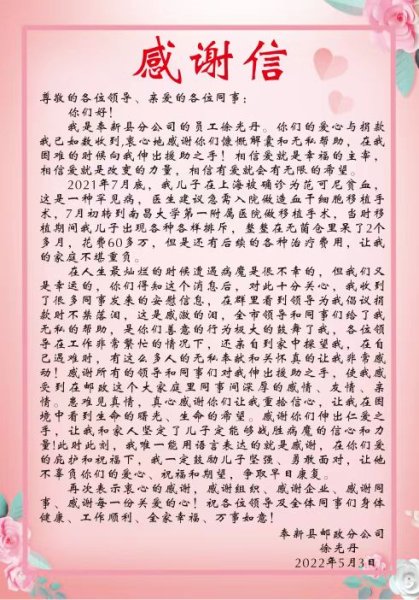 感谢信
尊敬的各位领导、亲爱的各位同事：
你们好！
我是奉新县分公司的员工徐光丹。你们的爱心与捐款
我已如数收到,衷心地感谢你们慷慨解囊和无私帮助，在我
困难的时候向我伸出援助之手！相信爱就是幸福的主宰，
相信爱就是改变的力量，相信有爱就会有无限的希望。
2021年7月底，我儿子在上海被确诊为范可尼贫血，
这是一种罕见病，医生建议急需入院做造血干细胞移植手
术，7月初转到南昌大学第一附属医院做移植手术，当时移
植期间我儿子出现各种各样排斥，整整在无菌仓里呆了2个
多月，花费60多万，但是还有后续的各种治疗费用，让我
的家庭不堪重负。
在人生最灿烂的时候遭遇病魔是很不幸的，但我们又
是幸运的，你们得知这个消息后，对此十分关心，我收到
了很多同事发来的安慰信息，在群里看到领导为我倡议捐
款时不禁落泪，这是感激的泪，全市领导和同事们给了我
无私的帮助，是你们善意的行为极大的鼓舞了我，各位领
导在工作非常繁忙的情况下，还亲自到家中探望我，在自
己遇难时，有这么多人的无私奉献和关怀真的让我非常感
动！感谢所有的领导和同事们对我伸出援助之手，使我感
受到在邮政这个大家庭里同事间深厚的感情、友情、亲
情。患难见真情，真心感谢你们让我重拾信心，让我在困
境中看到生命的曙光、生命的希望。感谢你们伸出仁爱之
手，让我和家人坚定了儿子定能够战胜病魔的信心和力
量!此时此刻，我唯一能用语言表达的就是感谢，在你们爱
的庇护和祝福下，我一定鼓励儿子坚强、勇敢面对，让他
不辜负你们的爱心、祝福和期望，争取早日康复。
再次表示衷心的感谢，感谢组织、感谢企业、感谢同
事、感谢每一份关爱的心！祝各位领导及全体同事们身体
健康、工作顺利、全家幸福、万事如意！
奉新县邮政分公司
徐光丹
2022年5月3日